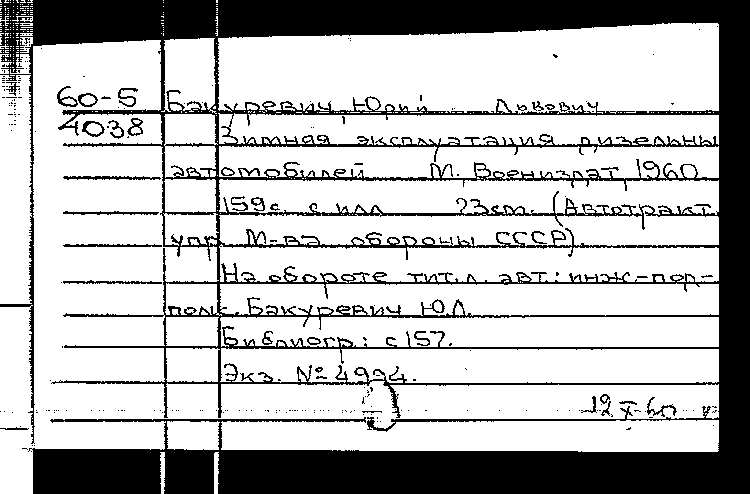 60-5
4038
Бакуревич, Юрий Львович
Зимняя эксплуатация дизельны
автомобилей М., Воениздат, 1960
159с. с илл 23см. (Автотракт.
упр. М-ва обороны СССР).
На обороте тит.л. авт.: инж-под-
полк. Бакуревич Ю.Л.
Библиогр: с 157.
Экз. № 4994.
12 X-60